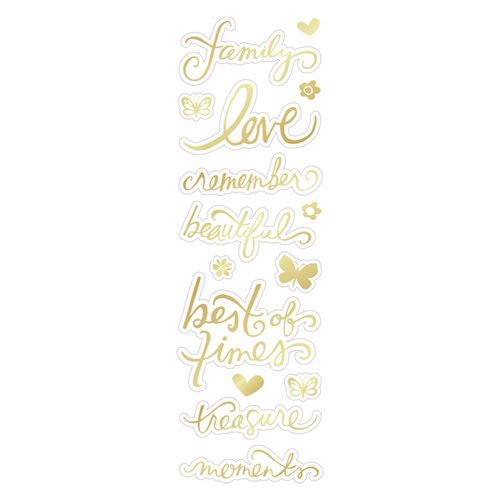 family
love
remember
beautiful
best of
times
treasure
moments